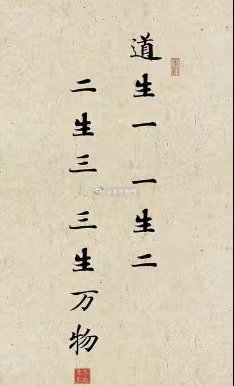 道生一一生二
二生三三生万物